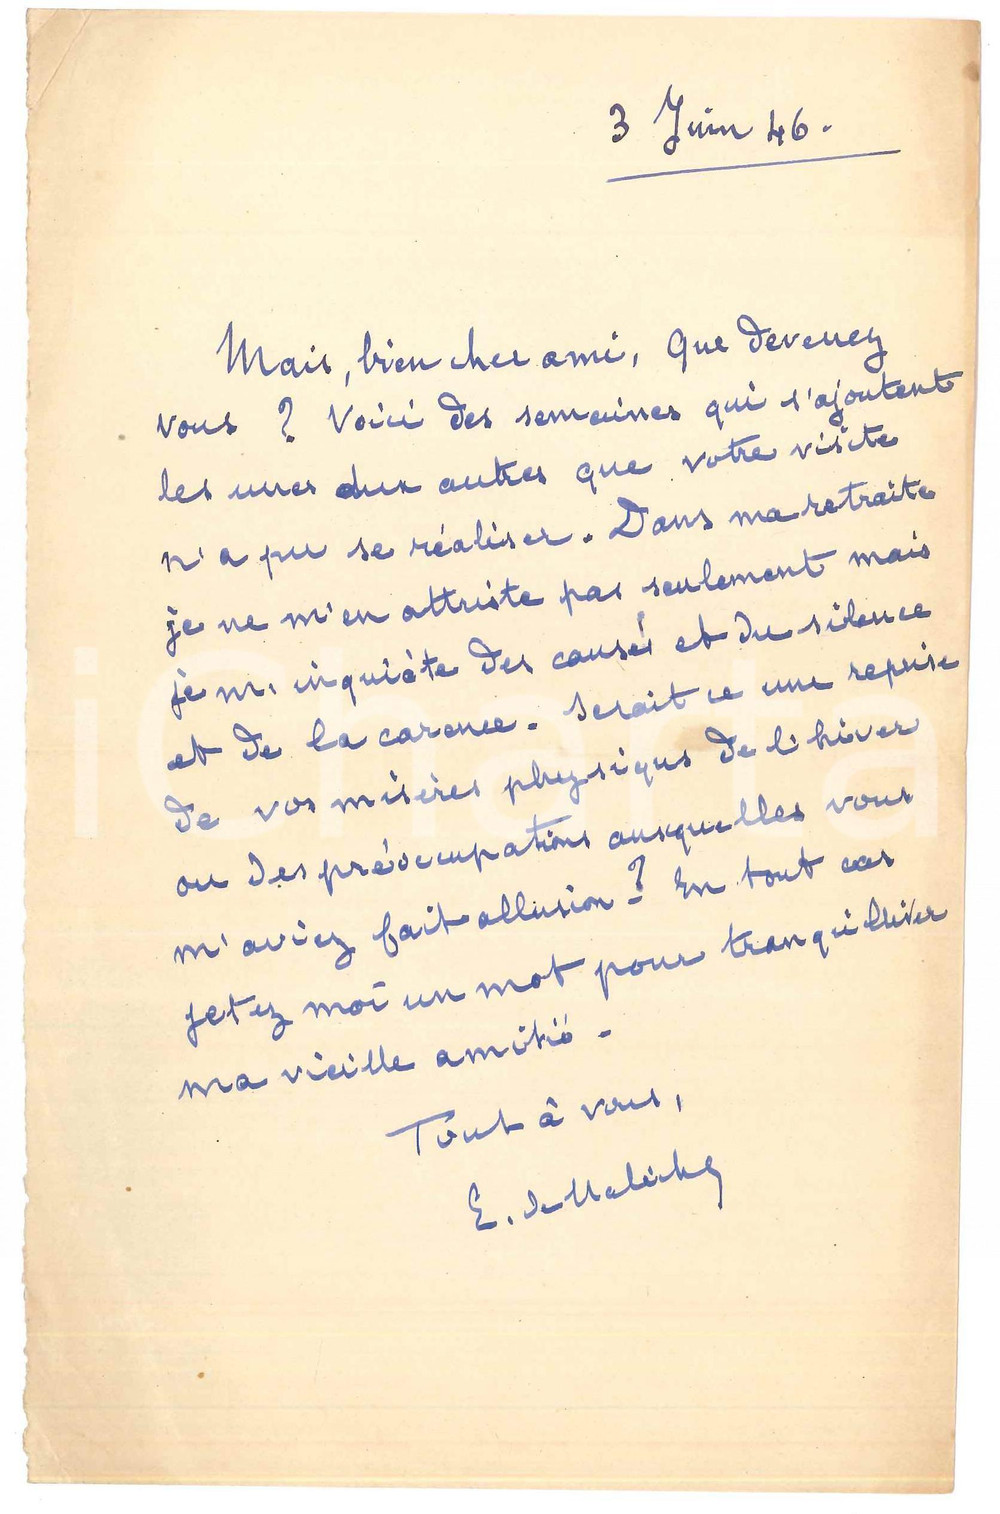 3 Juin 46.
Mais, bien cher ami, que devenez
vous ? Voici des semaines qui s'ajoutent
les unes aux autres que votre visite
n'a pu se réaliser. Dans ma retraite
je ne m'en attriste pas seulement mais
je m'inquiète des causes et du silence
et de la carence. Serait ce une reprise
de vos misères physiques de l'hiver
ou des préoccupations auxquelles vous
m'aviez fait allusion ? En tout cas
jetez moi un mot pour tranquilliser
ma vieille amitié.
Tout à vous,
E. de
iCharta